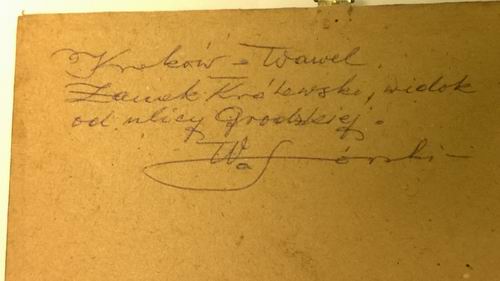 Kraków - Wawel.
Zamek Królewski, widok
od ulicy Grodzkiej.